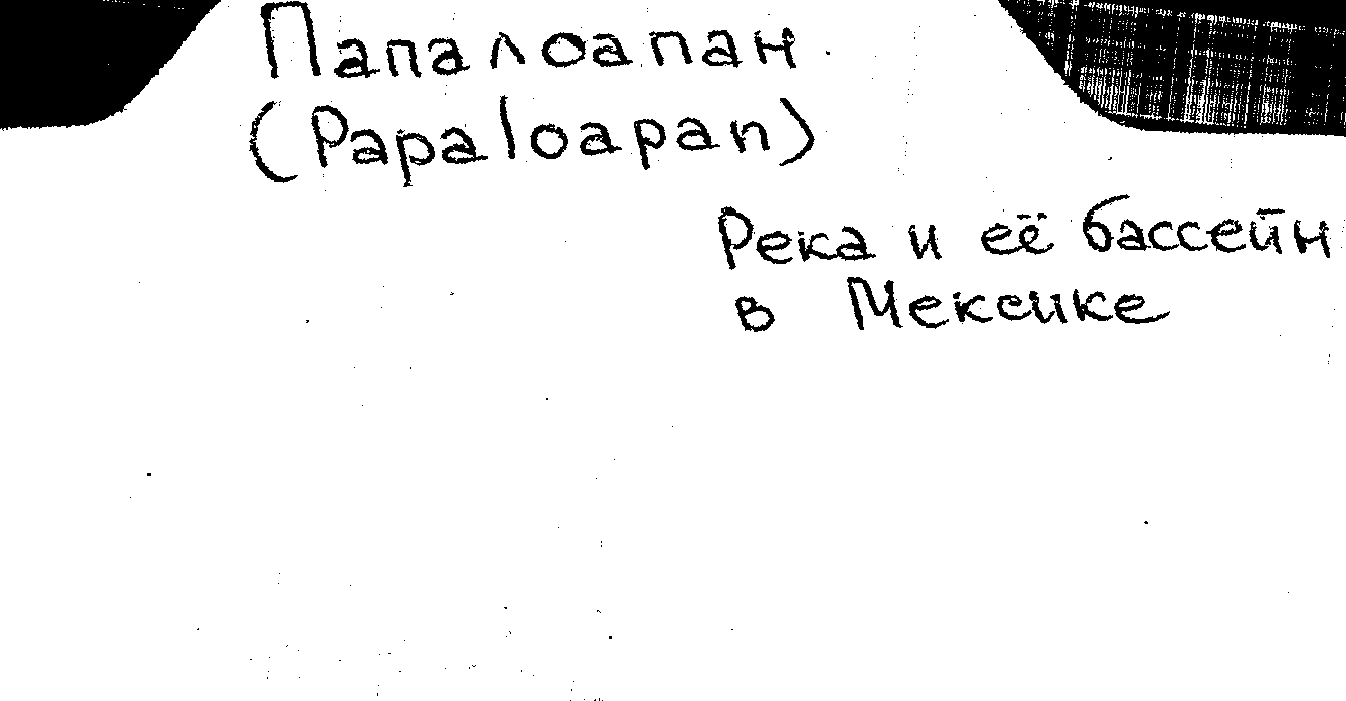 Папалоапан
(Papaloapan)
Река и её бассейн
в Мексике